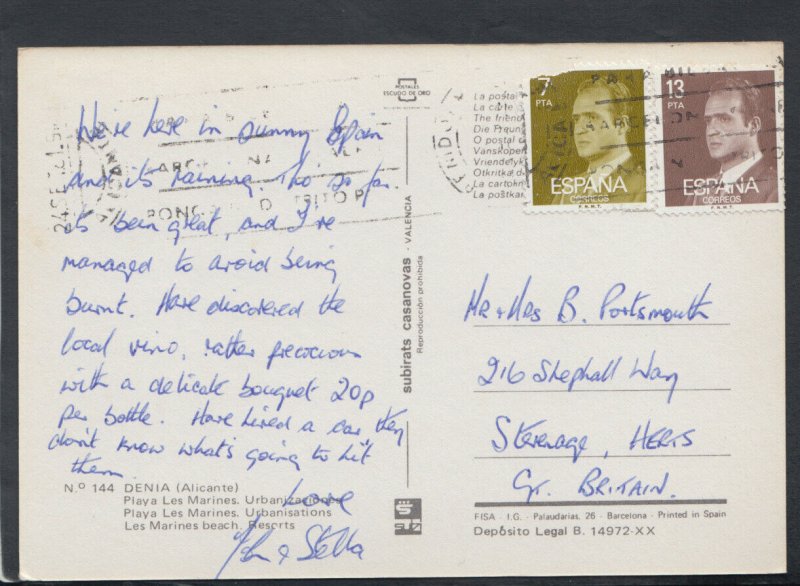 We're here in sunny Spain
and its raining. Tho so far
its been great, and I've
managed to avoid being
burnt. Have discovered the
local vino, rather precocious
with a delicate bouquet 20p
per bottle. Have hired a car they
don't know what's going to hit
them.
Love
& Stella
N.º 144 DENIA (Alicante)
Playa Les Marines. Urbanizaciones
Playa Les Marines. Urbanisations
Les Marines beach. Resorts
POSTALES
ESCUDO DE ORO
subirats casanovas - VALENCIA
Reproducción prohibida
La postal
La carte
The friend
Die Freun
O postal
Vanskaper
Vriendelyk
Otkritka d
La cartoli
La poštkar
7
PTA
ESPAÑA
CORREOS
F.N.M.T.
13
PTA
ESPAÑA
CORREOS
F.N.M.T.
Mr & Mrs B. Portsmouth
216 Shephall Way
Stevenage, HERTS
GT. BRITAIN.
FISA - I.G. - Palaudarias, 26 - Barcelona - Printed in Spain
Depósito Legal B. 14972-XX